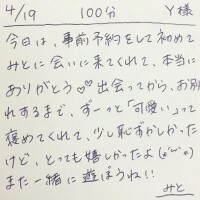 4/19 100分 Y様
今日は、事前予約をして初めて
みとに会いに来てくれて、本当に
ありがとう♡♡出会ってから、お別
れするまで、ずーっと「可愛い」って
褒めてくれて、少し恥ずかしかった
けど、とっても嬉しかったよ(*ˊᵕˋ*)
また一緒に遊ぼうね!!
みと